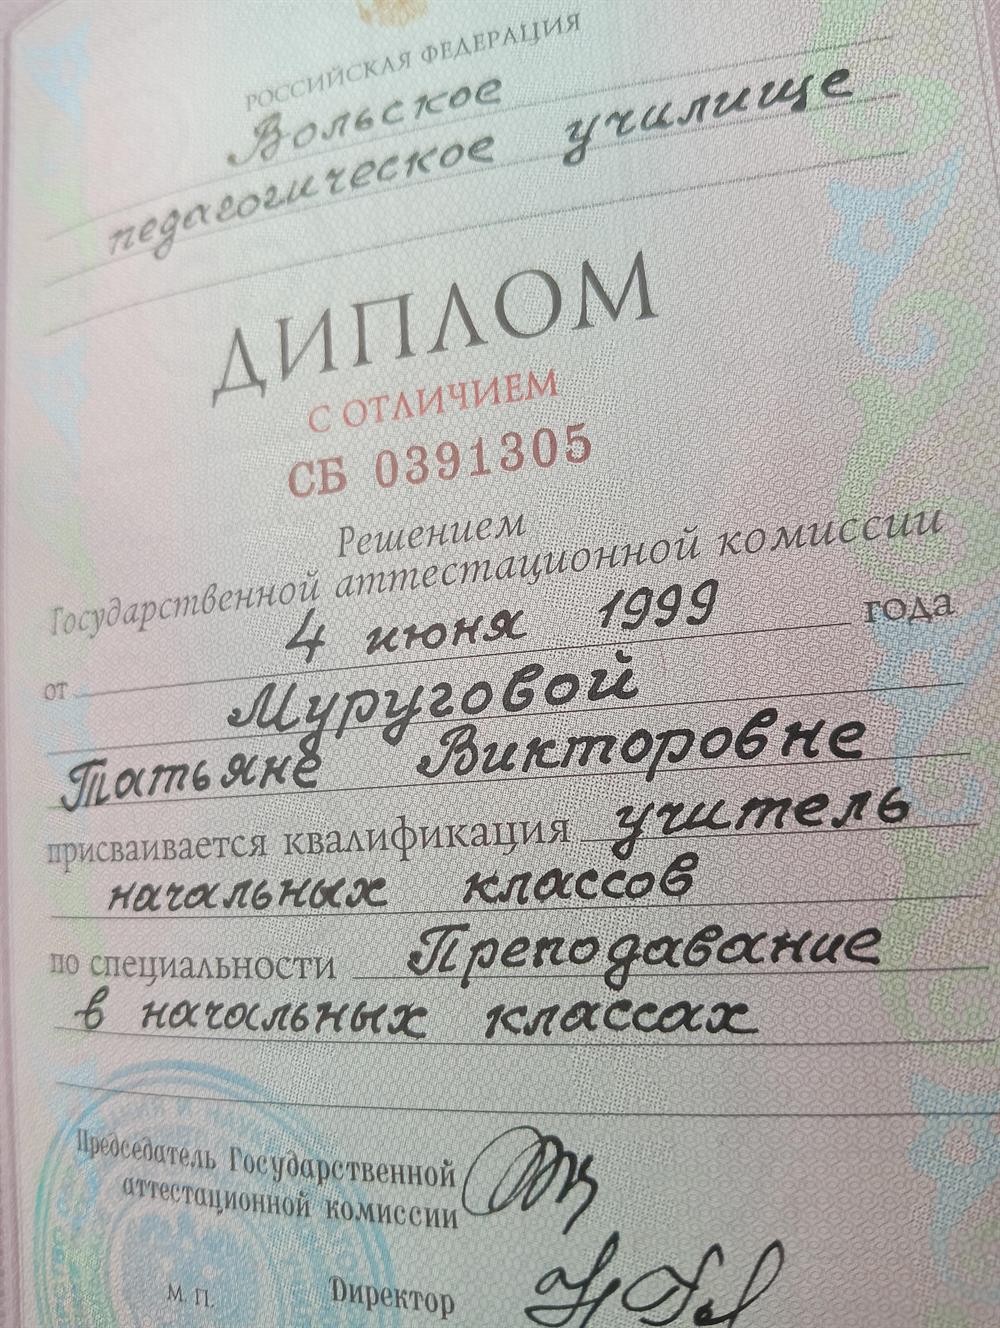 РОССИЙСКАЯ ФЕДЕРАЦИЯ
Вольское
педагогическое училище
ДИПЛОМ
С ОТЛИЧИЕМ
СБ 0391305
Решением
Государственной аттестационной комиссии
от 4 июня 1999 года
Муруговой
Татьяне Викторовне
присваивается квалификация учитель
начальных классов
по специальности Преподавание
в начальных классах
Председатель Государственной
аттестационной комиссии
М. П. Директор